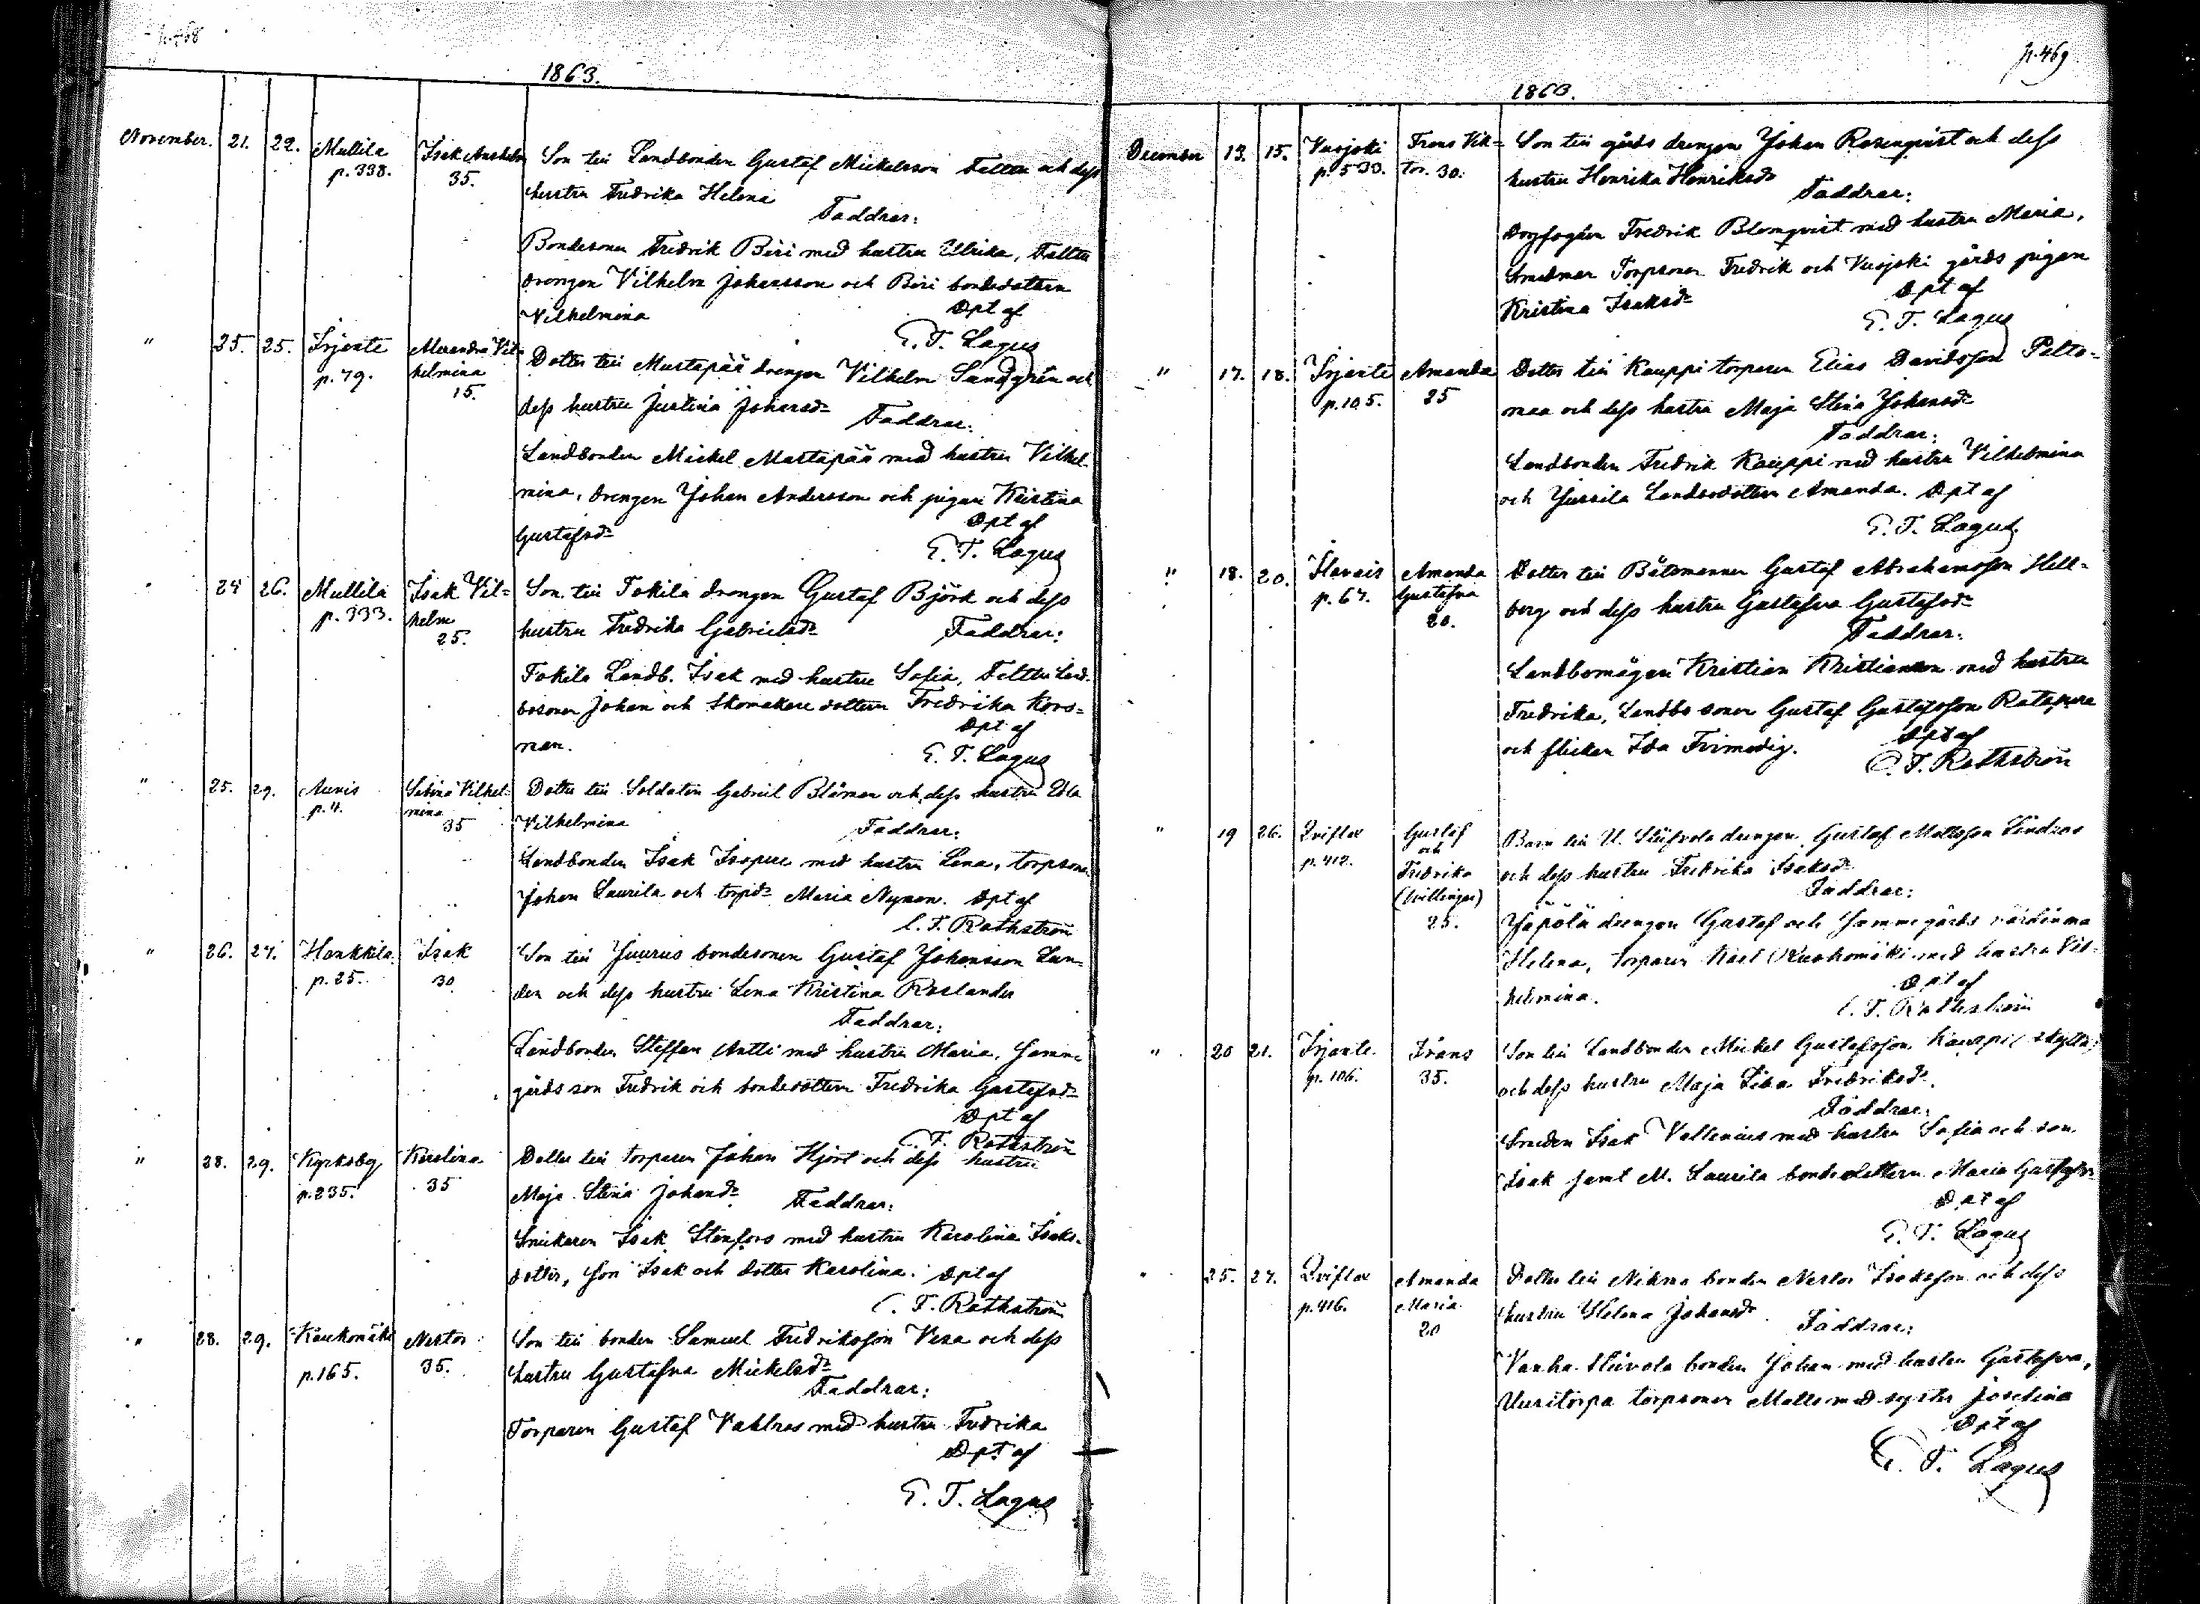 p. 468
1863.
November. 21. 22. Mullila Isak Anshelm Son till Landbonden Gustaf Mickelsson Felttu och dess
p. 338. 35. hustru Fredrika Helena
Faddrar:
Bondesonen Fredrik Biri med hustru Ulrika, Felttu
drengen Vilhelm Johansson och Biri bondedottern
Vilhelmina Dpt af
G. T. Lagus
" 25. 25. Irjante Alexandra Vil-
helmina Dotter till Mustapää drengen Vilhelm Sandgrén och
p. 79. 15. dess hustru Justina Johansdr
Faddrar:
Landbonden Mickel Mustapää med hustru Vilhel-
mina, drengen Johan Andersson och pigan Kristina
Gustafsdr Dpt af
G. T. Lagus
" 24 26. Mullila Isak Vil= Son till Fokila drengen Gustaf Björk och dess
p. 333. helm hustru Fredrika Gabrielsdr Faddrar:
25.
Fokila Landb. Isak med hustru Sofia, Felttu Land-
bosonen Johan och Skomakare dottern Fredrika Kors=
man. Dpt af
G. T. Lagus
" 25. 29. Auvis Sabina Vilhel- Dotter till Soldaten Gabriel Blåman och dess hustru Eva
p. 4. mina Vilhelmina Faddrar:
35
Landbonden Isak Isopere med hustru Lena, torpsonen
Johan Laurila och torpdr Maria Nyman. Dpt af
C. F. Rothström
" 26. 27. Honkkila Isak Son till Juurus bondesonen Gustaf Johansson Lun-
p. 25. 30 den och dess hustru Lena Kristina Roslander
Faddrar:
Landbonden Steffan Antti med hustru Maria, Samma
gårds son Fredrik och bondedottern Fredrika Gustafsdr
Dpt af
C. F. Rothström
" 28. 29. Kyrkoby Karolina Dotter till torparen Johan Hjort och dess hustru
p. 235. 35 Maja Stina Johansdr Faddrar:
Snickaren Isak Stenfors med hustru Karolina Isaks-
dotter, son Isak och dotter Karolina. Dpt af
C. F. Rothström
" 28. 29. Kaukomäki Nestor Son till bonden Samuel Fredriksson Vesa och dess
p. 165. 35. hustru Gustafva Mickelsdr
Faddrar:
Torparen Gustaf Vahlros med hustru Fredrika
Dpt af
G. T. Lagus
p. 469
1863.
December 13. 15. Vuojoki Frans Vik= Son till gårds drengen Johan Rosenqvist och dess
p. 533. tor. 30. hustru Henrika Henriksdr
Faddrar:
Fredrik Blomqvist med hustru Maria,
Torpsonen Fredrik och Vuojoki gårds pigan
Kristina Isaksdr Dpt af
G. T. Lagus
" 17. 18. Irjante Amanda Dotter till Kauppi torparen Elias Davidsson Pelto-
p. 105. 25 maa och dess hustru Maja Stina Johansdr
Faddrar:
Landbonden Fredrik Kauppi med hustru Vilhelmina
och Jussila Landbodottern Amanda. Dpt af
G. T. Lagus
" 18. 20. Ilavais Amanda Dotter till Båtsmannen Gustaf Abrahamsson Hell-
p. 67. Gustafva berg och dess hustru Gustafva Gustafsdr
20. Faddrar:
Landbomågen Kristian Kristiansson med hustru
Fredrika, Landbosonen Gustaf Gustafsson Ratapera
och flickan Ida Frimodig. Dpt af
C. F. Rothström
" 19 26. Qviflax Gustaf Barn till U. Sleifvola drengen Gustaf Mattsson Lindros
p. 412. och
Fredrika och dess hustru Fredrika Isaksdr
(tvillingar) Faddrar:
25. Yöpölä drengen Gustaf och Samma gårds värdinna
Helena, torparen Karl Kuokomäki med hustru Vil-
helmina. Dpt af
C. F. Rothström
" 20 21. Irjante Frans Son till Landbonden Mickel Gustafsson Kauppi (Skyttä)
p. 106. 35. och dess hustru Maja Lisa Fredriksdr.
Faddrar:
Smeden Isak Vallenius med hustru Sofia och son
Isak samt M. Laurila bondedottern Maria Gustafva
Dpt af
G. T. Lagus
" 25. 27. Qviflax Amanda Dotter till Nikraa bonden Nestor Isaksson och dess
p. 416. Maria hustru Helena Johansdr Faddrar:
20
Vanha Sleivola bonden Johan med hustru Gustafva,
Uusitorpa torpsonen Matts med syster Josefina
Dpt af
G. T. Lagus